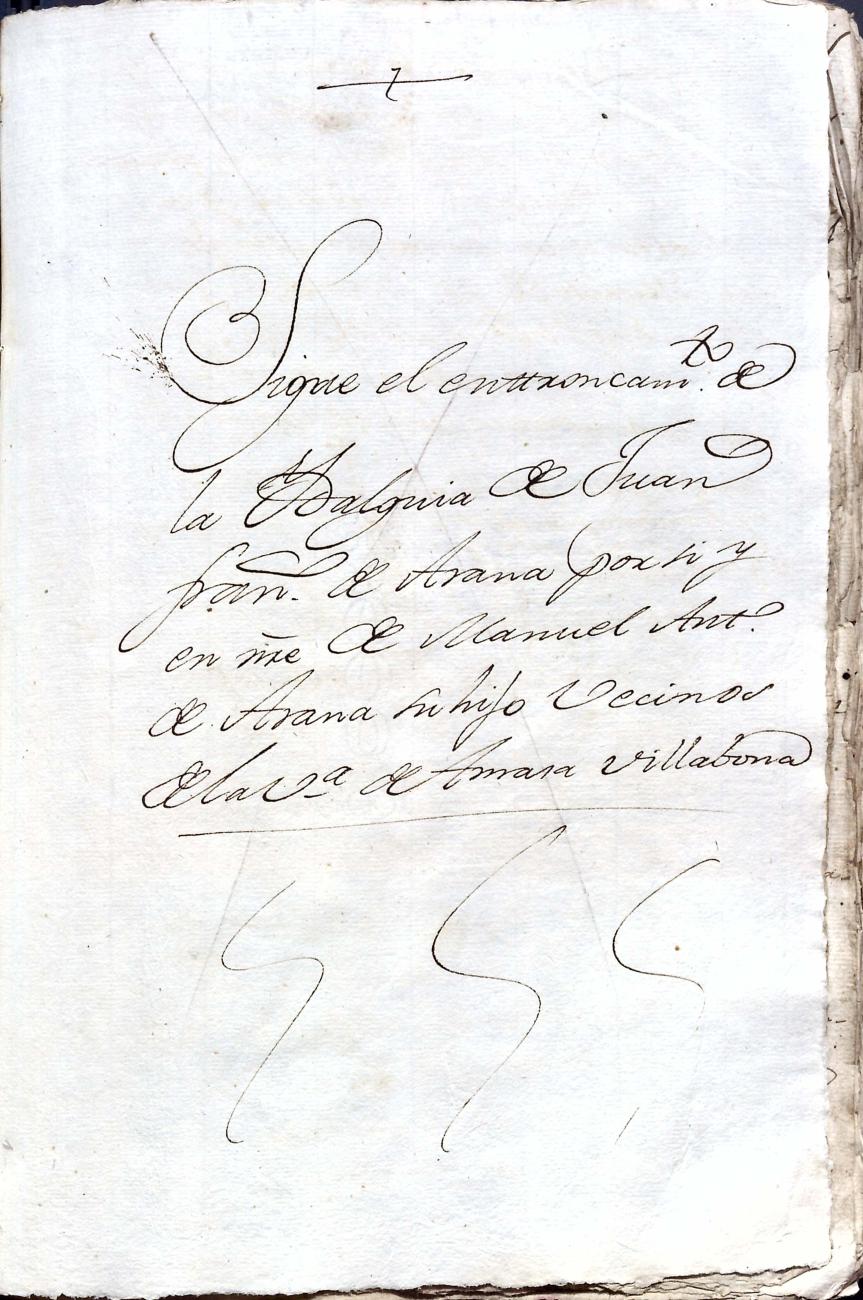 Sigue el enttroncamto. de
la Ydalguia de Juan
Fran.co de Arana por si y
en nre de Manuel Ant.o
de Arana su hijo Vecinos
de la Va de Amasa Villabona